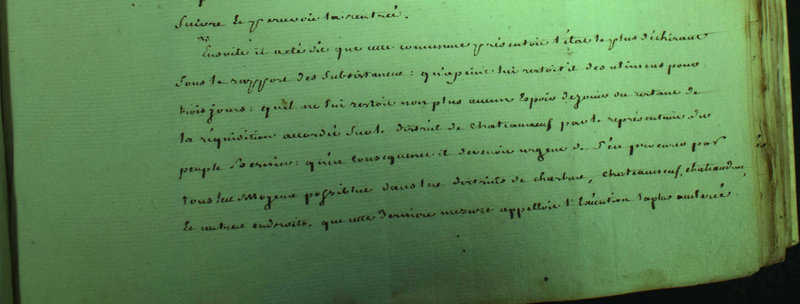 suivre et percevoir la rentrée.
Ensuite il a été dit que cette commune présentoit l'état le plus déchirant
sous le rapport des subsistances : qu'apeine lui restoit il des alimens pour
trois jours : quil ne lui restoit non plus aucun Espoir de jouir du restant de
la réquisition accordée sur le district de chateauneuf par le représentant du
peuple Bernier : qu'en conséquence il devenoit urgent de s'en procurer par
tous les moyens possibles dans les districts de chartres, chateauneuf, chateaudun,
Et autres endroits. que cette dernière mesure appelloit l'Exécution la plus